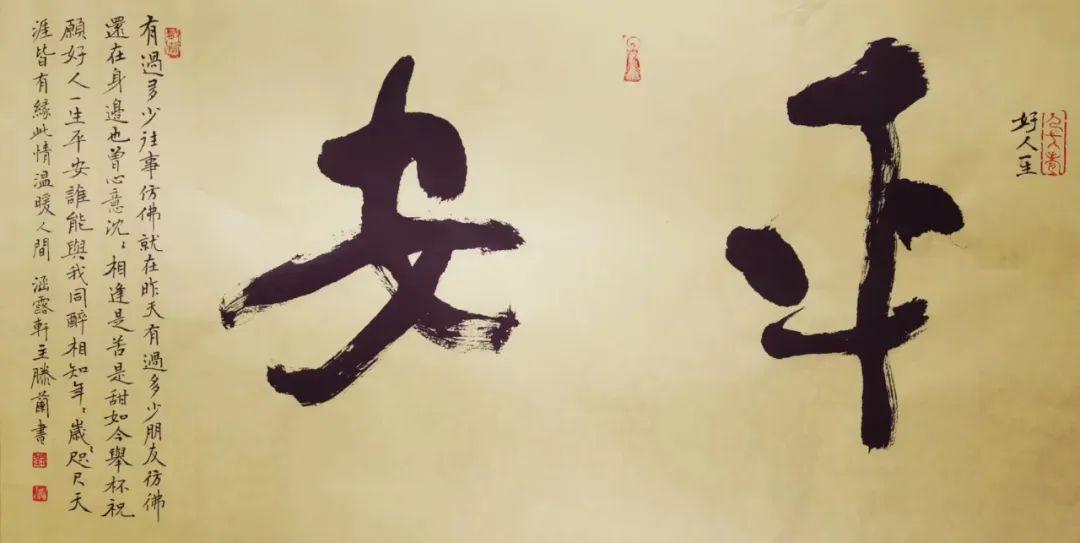 好人一生
平安
有過多少往事仿佛就在昨天有過多少朋友仿佛
還在身邊也曾心意沈〻相逢是苦是甜如今舉杯祝
願好人一生平安誰能與我同醉相知年〻歲〻咫尺天
涯皆有緣此情溫暖人間 涵露軒主滕蘭書